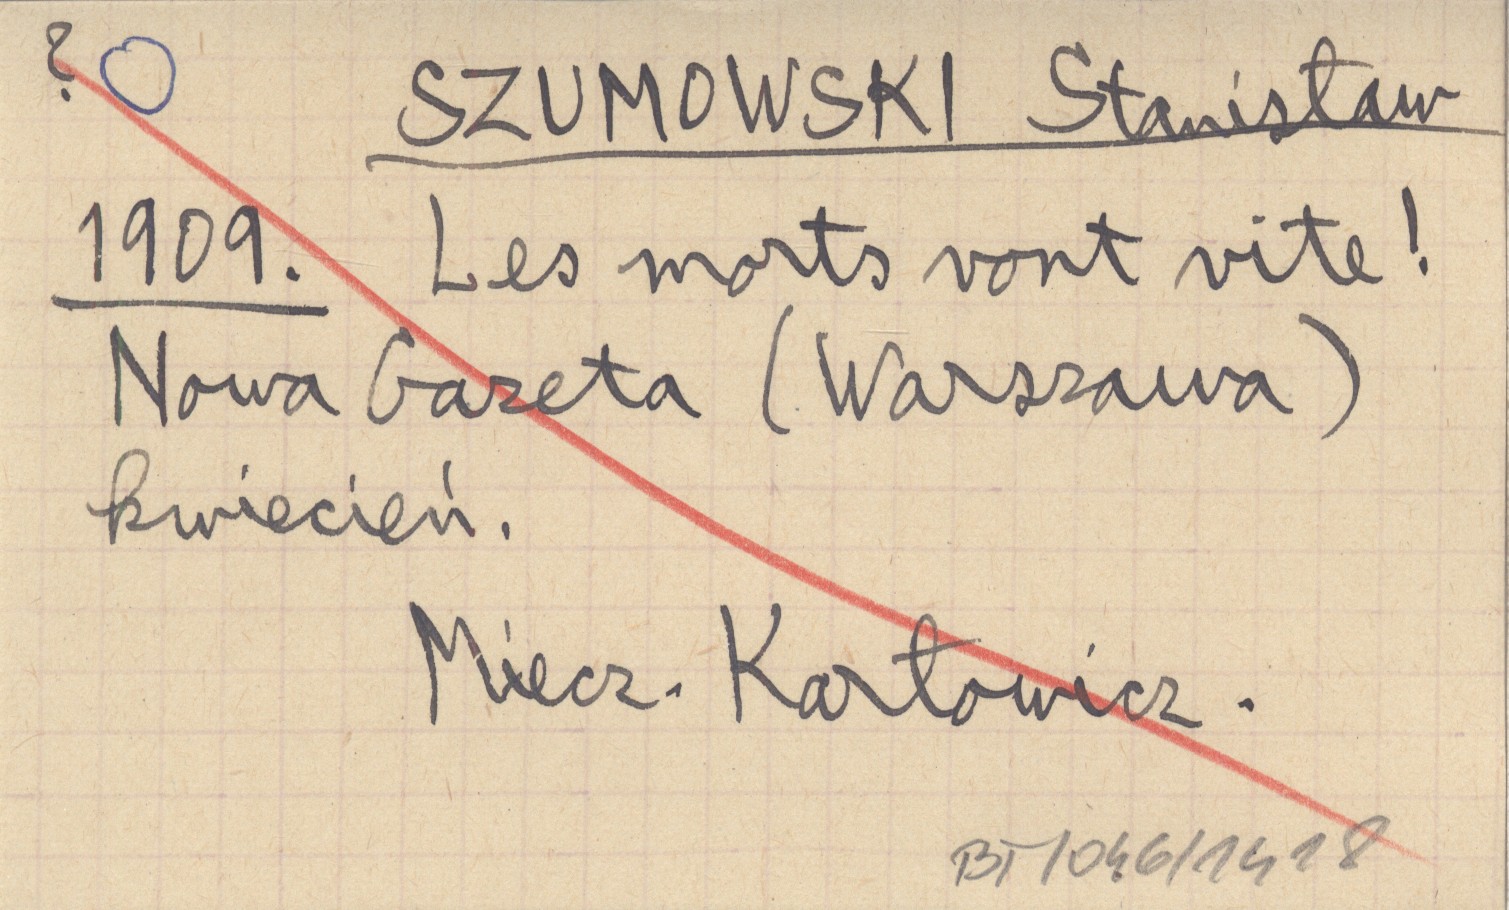 ?
SZUMOWSKI Stanisław
1909. Les morts vont vite!
Nowa Gazeta (Warszawa)
kwiecień.
Miecz. Karłowicz.
BT/046/1418